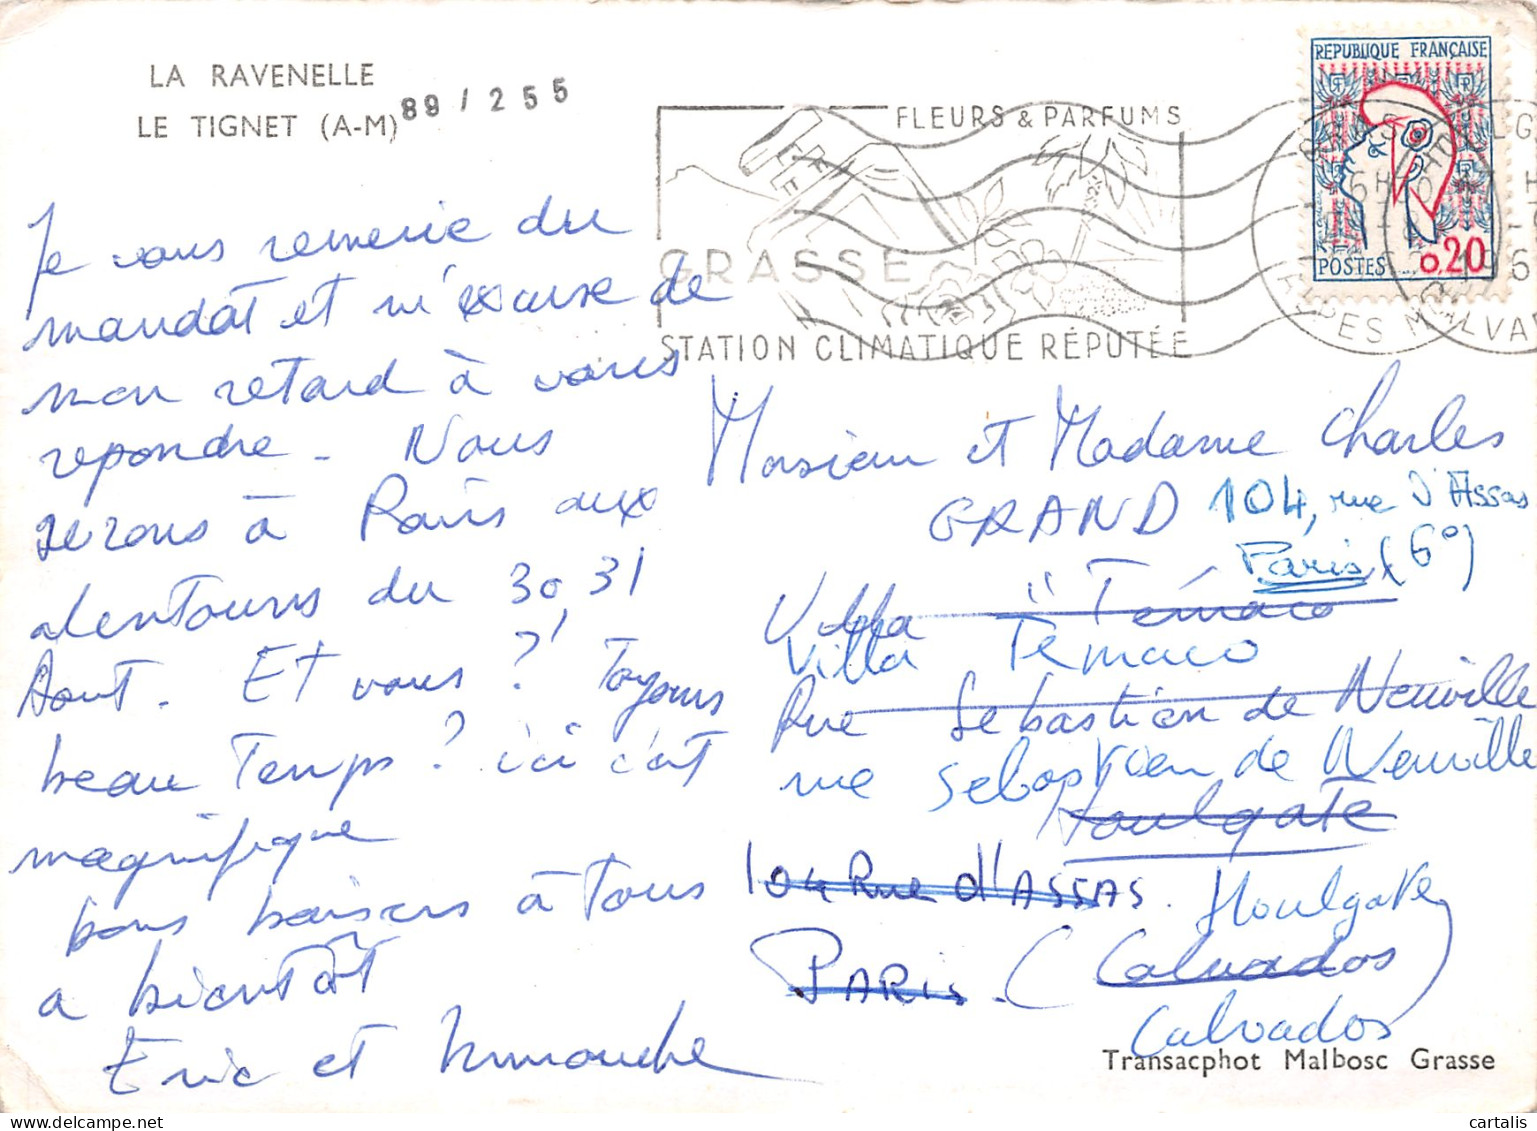 LA RAVENELLE
LE TIGNET (A-M)
89 / 255
FLEURS & PARFUMS
GRASSE
STATION CLIMATIQUE RÉPUTÉE
REPUBLIQUE FRANÇAISE
POSTES
0,20
Je vous remercie du
mandat et m'excuse de
mon retard à vous
repondre - Nous
serons à Paris aux
alentours du 30, 31
Aout. Et vous ? Toujours
beau Temps ? ici c'est
magnifique
bons baisers à Tous
a bientôt
Eric et
Monsieur et Madame Charles
GRAND
104, rue d'Assas
Paris (6°)
Villa "Témaco
Villa Témaco
Rue Sebastien de Neuville
rue Sebastien de Neuville
Houlgate
104 Rue d'ASSAS.
Houlgate
PARIS. (Calvados)
Calvados
Transacphot Malbosc Grasse
cartalis
www.delcampe.net